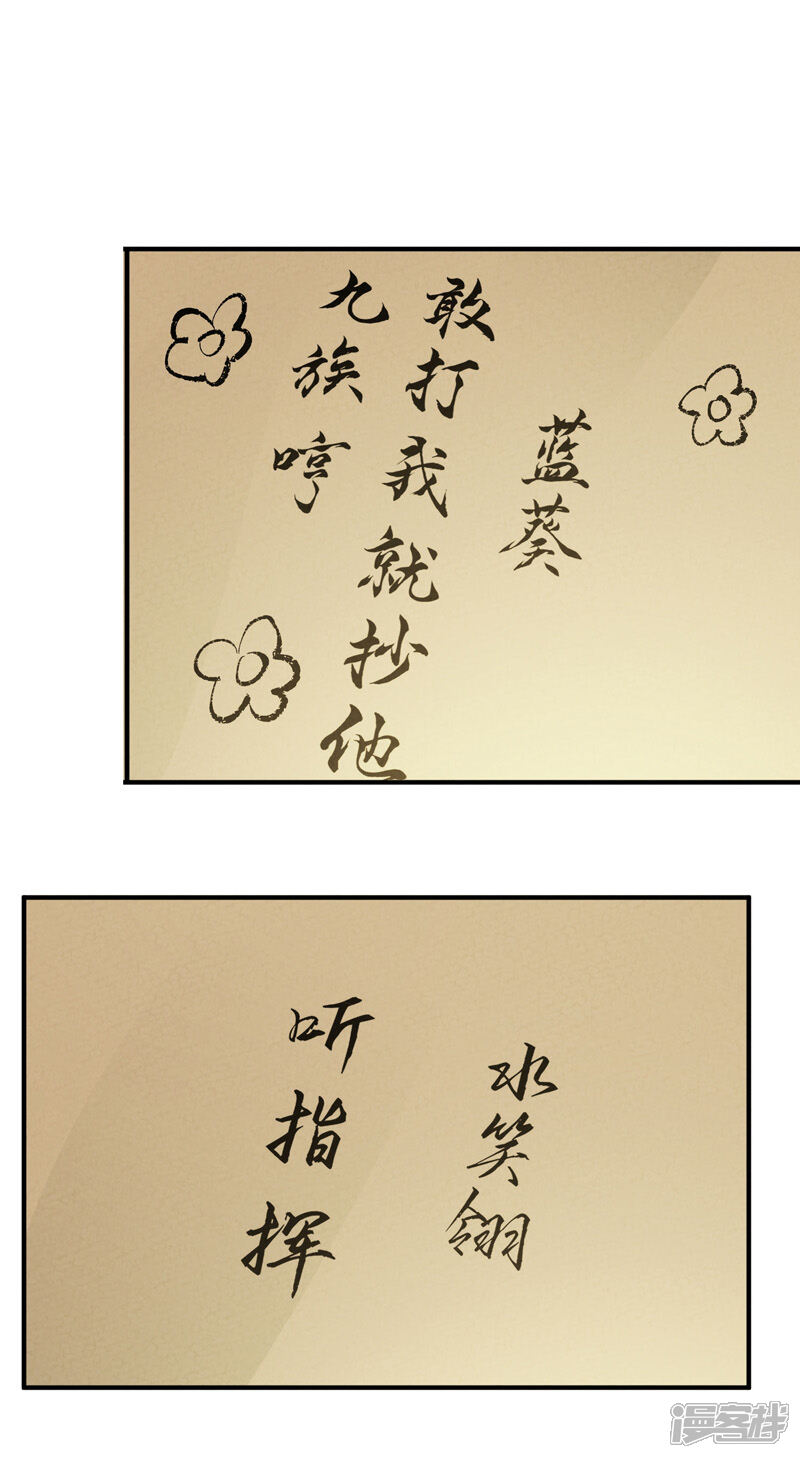 蓝葵
敢打我就抄他
九族哼
水笑翎
听指挥
漫客栈